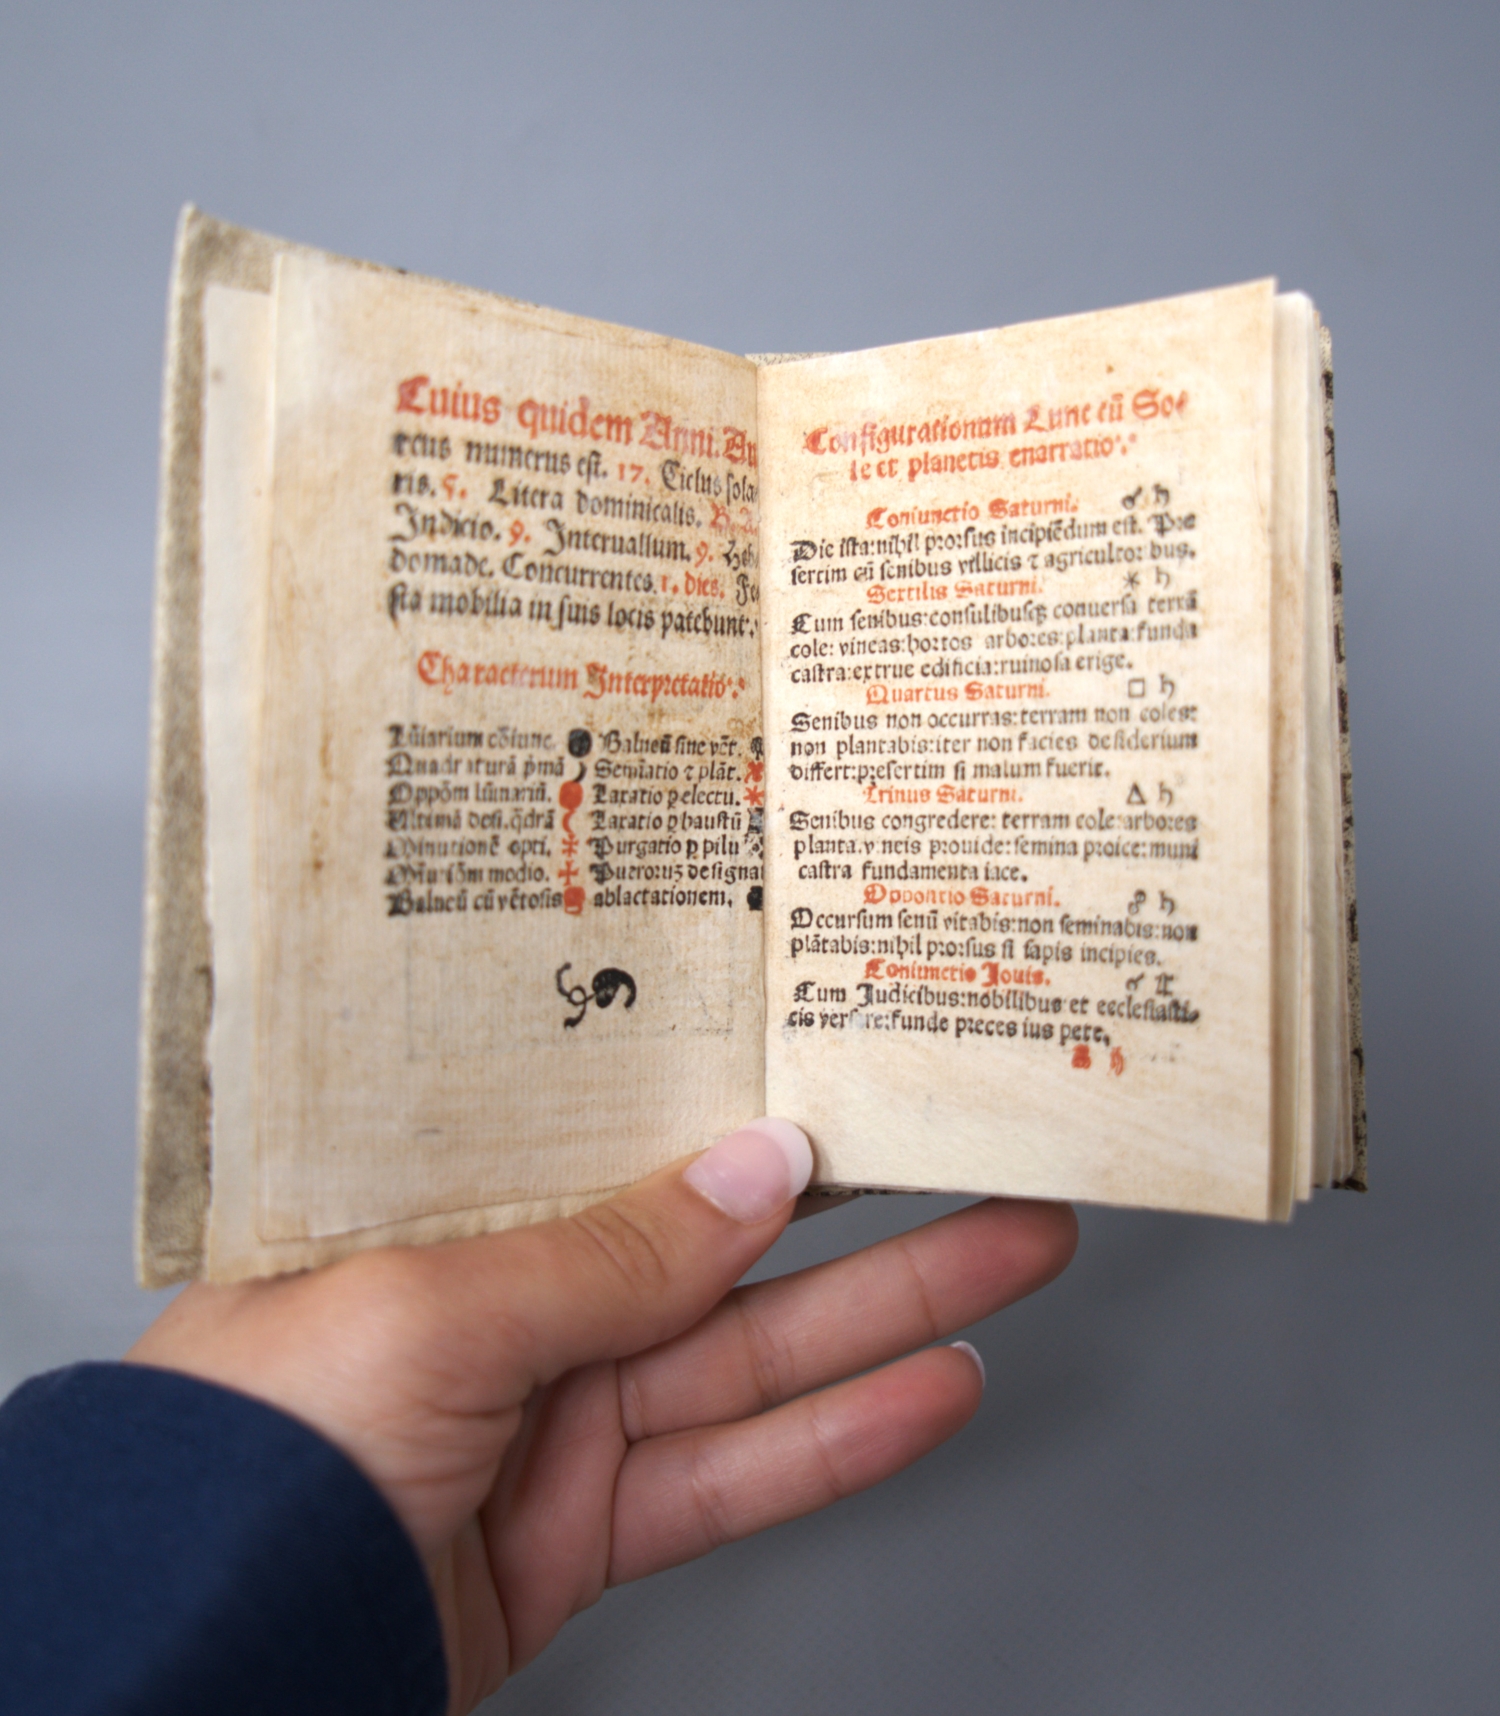 Cuius quidem Anni. Au
reus numerus est. 17. Ciclus sola
ris. 5. Litera dominicalis.
Indicio. 9. Interuallum. 9. Heb
domade. Concurrentes. 1. dies. Fe
sta mobilia in suis locis patebunt.
Characterum Interpretatio.
Balneū sine vēt.
Quadraturā pmā Semīatio ⁊ plāt.
Oppōm lūinariū. Laxatio p electu.
Vltimā desi. q̄drā Laxatio p haustū
Minutionē opti. Purgatio p pilu
modio. Pueroruꝫ designat
Balneū cū vētosis ablactationem.
Configurationum Lune cū So⸗
le et planetis enarratio.
Coniunctio Saturni. ☌ ♄
Die ista: nihil prorsus incipiēdum est. Pre
sertim cū senibus villicis ⁊ agricultoribus.
Sextilis Saturni. ⚹ ♄
Cum senibus: consulibusqꝫ conuersa terrā
cole: vineas: hortos arbores: planta: funda
castra: extrue edificia: ruinosa erige.
Quartus Saturni. □ ♄
Senibus non occurras: terram non coles:
non plantabis: iter non facies desiderium
differt: presertim si malum fuerit.
Trinus Saturni. △ ♄
Senibus congredere: terram cole: arbores
planta. vineis prouide: semina proice: muni
castra fundamenta iace.
Oppositio Saturni. ☍ ♄
Occursum senū vitabis: non seminabis: non
plātabis: nihil prorsus si sapis incipies.
Coniunctio Jouis. ☌ ♃
Cum Judicibus: nobilibus et ecclesiasti⸗
cis versare: funde preces ius pete.